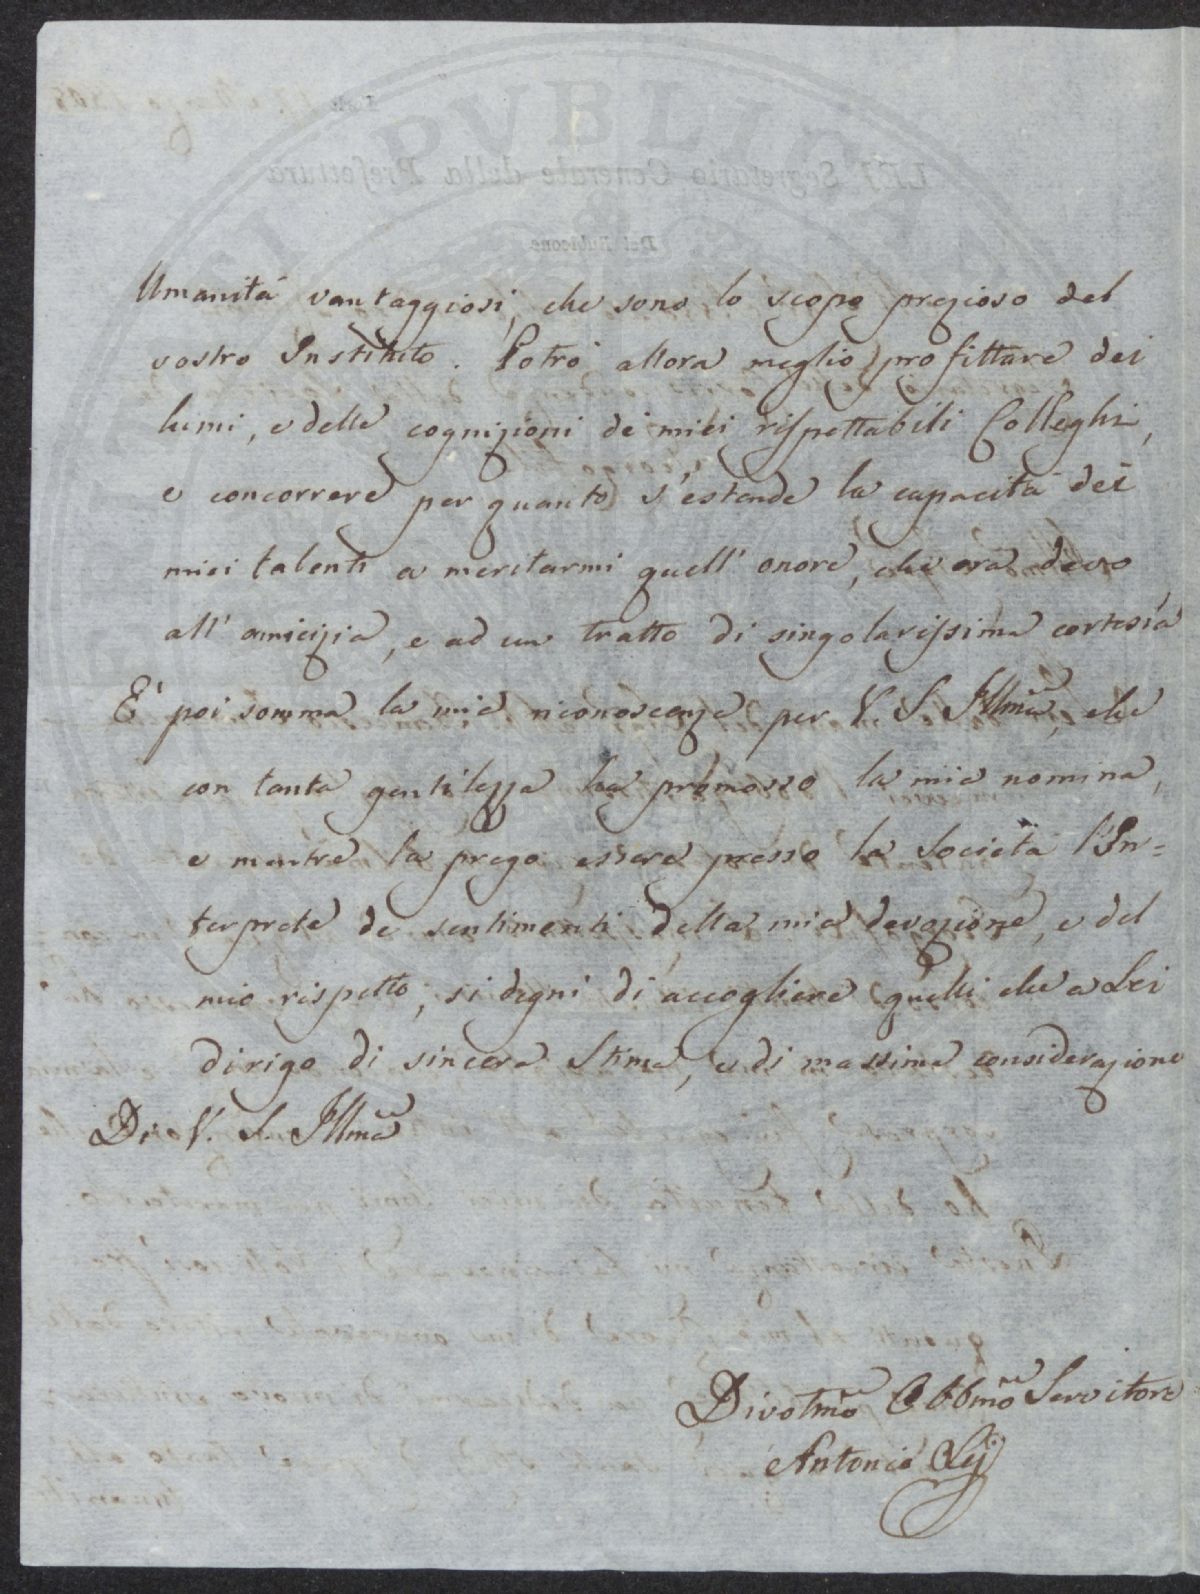 Umanità vantaggiosi, che sono lo scopo prezioso del
vostro Instituto. Potrò allora meglio profittare dei
lumi, e delle cognizioni de miei rispettabili Colleghi,
e concorrere per quanto s'estende la capacità dei
miei talenti a meritarmi quell'onore, che ora devo
all'amicizia, e ad un tratto di singolarissima cortesia
E' poi somma la mia riconoscenza per V. S. Illma, che
con tanta gentilezza ha promosso la mia nomina,
e mentre la prego essere presso la Società l'In=
terprete de sentimenti della mia devozione, e del
mio rispetto, si degni di accogliere quelli che a Lei
dirigo di sincera Stima, e di massima considerazione
Di V. S. Illma
Divotmo Obbmo Servitore
Antonio Lej